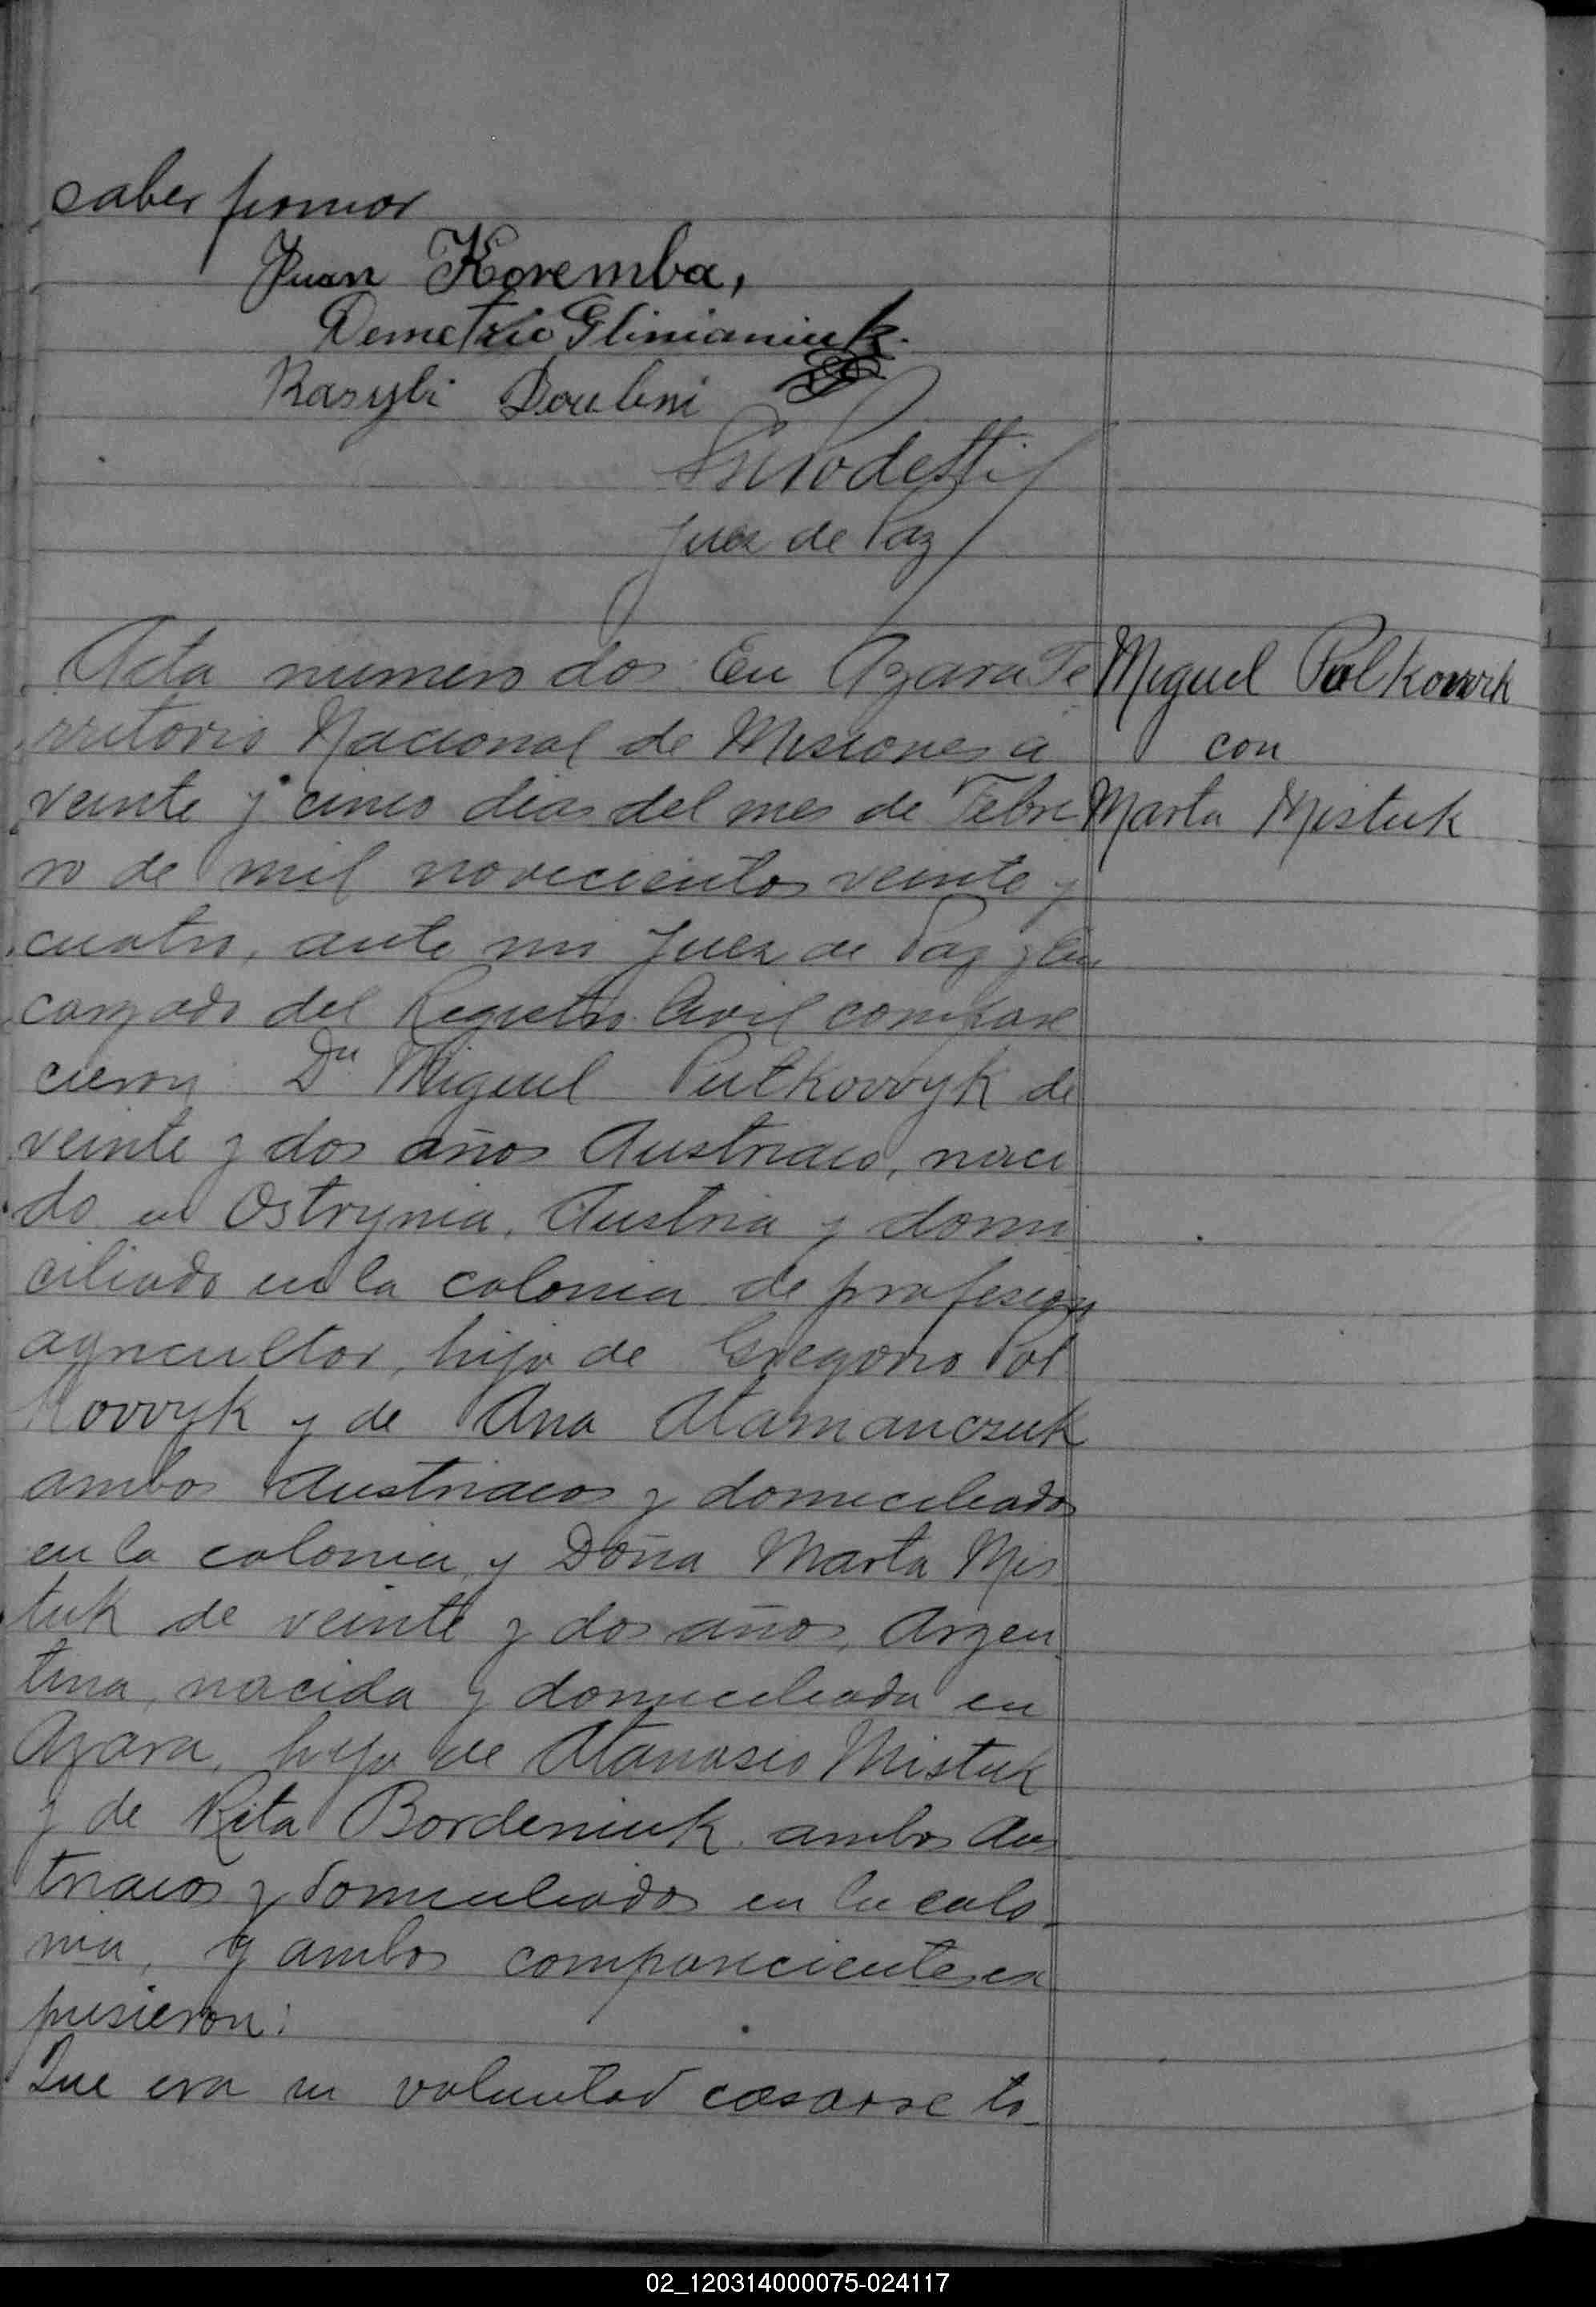 saber firmar
Juan Koremba,
Demetrio Glinianiuk.
Juez de Paz
Acta numero dos: En Azara Te
rritorio Nacional de Misiones a
veinte y cinco dias del mes de Febre
ro de mil novecientos veinte y
cuatro, ante mi Juez de Paz y En
cargado del Registro Civil compare
cieron: Dn Miguel Putkowyk de
veinte y dos años Austriaco, naci
do en Ostrynia, Austria y domi
ciliado en la colonia de profesion
agricultor, hijo de Gregorio Pot
kovvyk y de Ana Atamanczuk
ambos Austriacos y domiciliados
en la colonia, y Doña Marta Mis
tuk de veinte y dos años, Argen
tina, nacida y domiciliada en
Azara, hija de Atanasio Mistuk
y de Rita Bordeniuk ambos Aus
triacos y domiciliados en la colo-
nia, y ambos comparecientes ex
pusieron:
Que era su voluntad casarse to-
Miguel Polkowik
con
Marta Mistuk
02_120314000075-024117